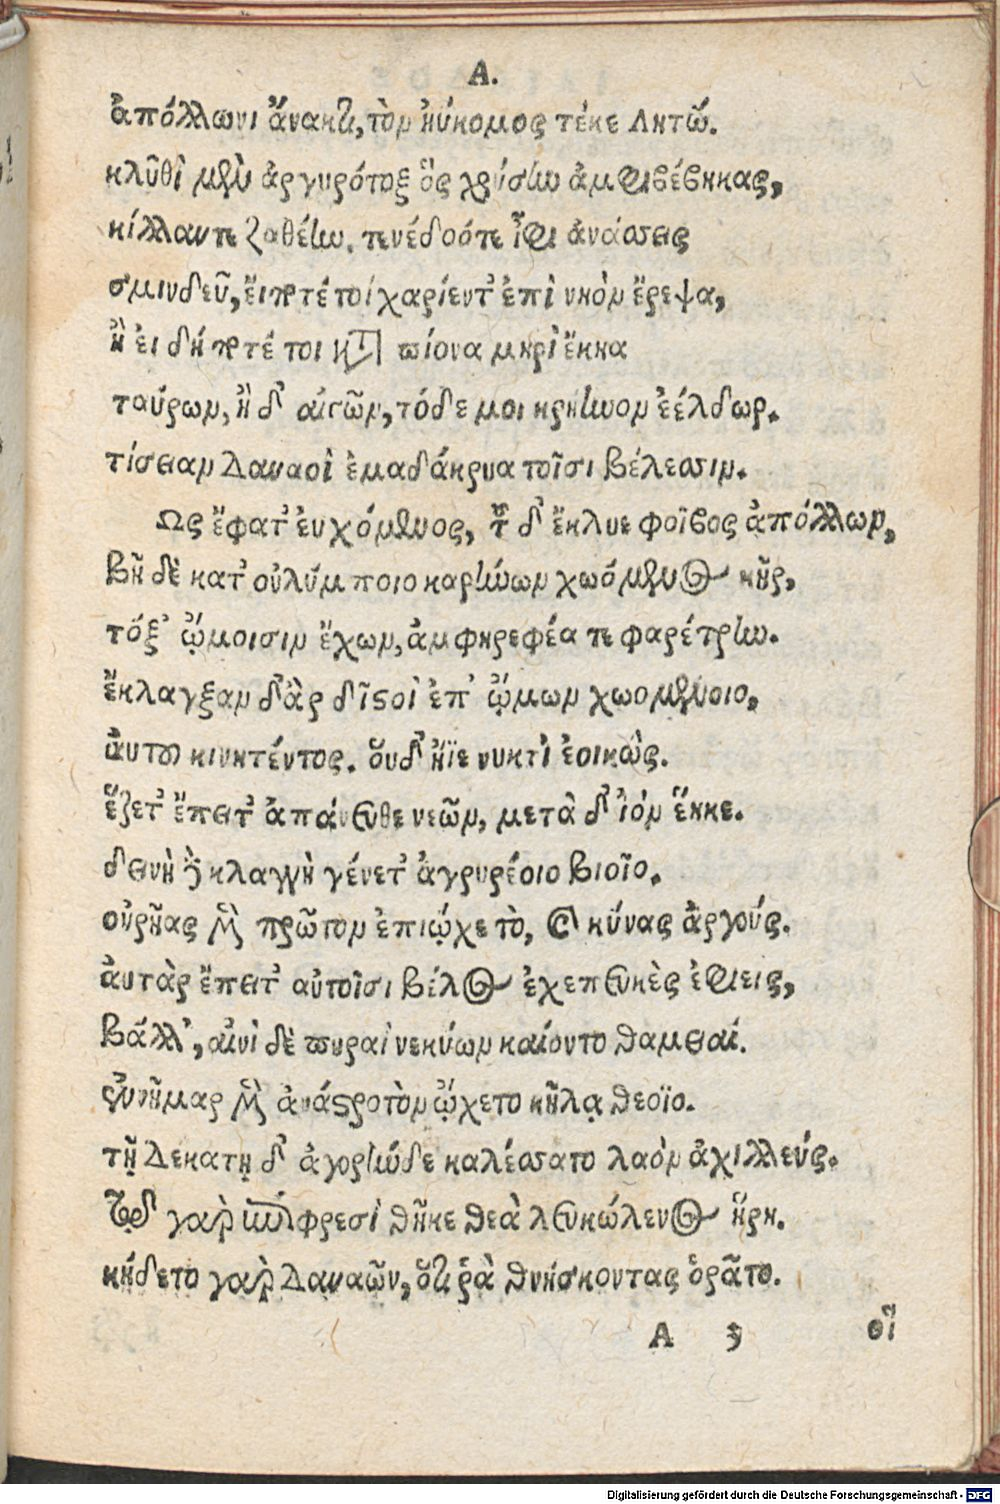 Α.
ἀπόλλωνι ἄνακτι, τὸν ἠύκομος τέκε Λητώ.
κλῦθί μευ ἀργυρότοξ ὃς χρύσην ἀμφιβέβηκας,
κίλλαντε ζαθέην. τενέδοότε ἶφι ἀνάσσεις
σμινθεῦ, ἔιποτέ τοί χαρίεντ' ἐπὶ νηὸν ἔρεψα,
ἢ ἐι δήποτέ τοι κατὰ πίονα μηρὶ ἔκηα
ταύρων, ἢ δ' αἰγῶν, τόδε μοι κρήηνον ἐέλδωρ.
τίσειαν Δαναοὶ ἐμαδάκρυα τοῖσι βέλεσσιν.
Ως ἔφατ' ἐυχόμενος, τοῦ δ' ἔκλυε φοῖβος ἀπόλλων,
βῆ δὲ κατ' οὐλύμποιο καρήνων χωόμενος κῆρ,
τόξ' ὤμοισιν ἔχων, ἀμφηρεφέα τε φαρέτρην.
ἔκλαγξαν δ' ἂρ ὀϊστοὶ ἐπ' ὤμων χωομένοιο,
ἀυτοῦ κινητέντος. ὅυδ' ἤϊε νυκτὶ ἐοικὼς.
ἕζετ' ἔπειτ' ἀπάνευθε νεῶν, μετὰ δ' ἰὸν ἕηκε.
δεινὴ δὲ κλαγγὴ γένετ' ἀγρυρέοιο βιοῖο.
οὐρῆας μὲν πρῶτον ἐπιῴχετὸ, καὶ κύνας ἄργούς.
ἀυτὰρ ἔπειτ' αὐτοῖσι βέλος ἐχεπευκὲς ἐφιεις,
βάλλ', αἰεὶ δὲ πυραὶ νεκύων καίοντο θαμειαί.
ἐννῆμαρ μὲν ἀνάστροτὸν ᾤχετο κῆλα θεοῖο.
τῇ Δεκατῃ δ' ἀγορήνδε καλέσσατο λαὸν ἀχιλλεύς.
τῷ γὰρ ἐπὶ φρεσὶ θῆκε θεὰ λευκώλενος ἥρη.
κήδετο γαρ Δαναῶν, ὅτι ῥὰ θνήσκοντας ὁρᾶτο.
Α 3 οἳ
Digitalisierung gefördert durch die Deutsche Forschungsgemeinschaft - DFG